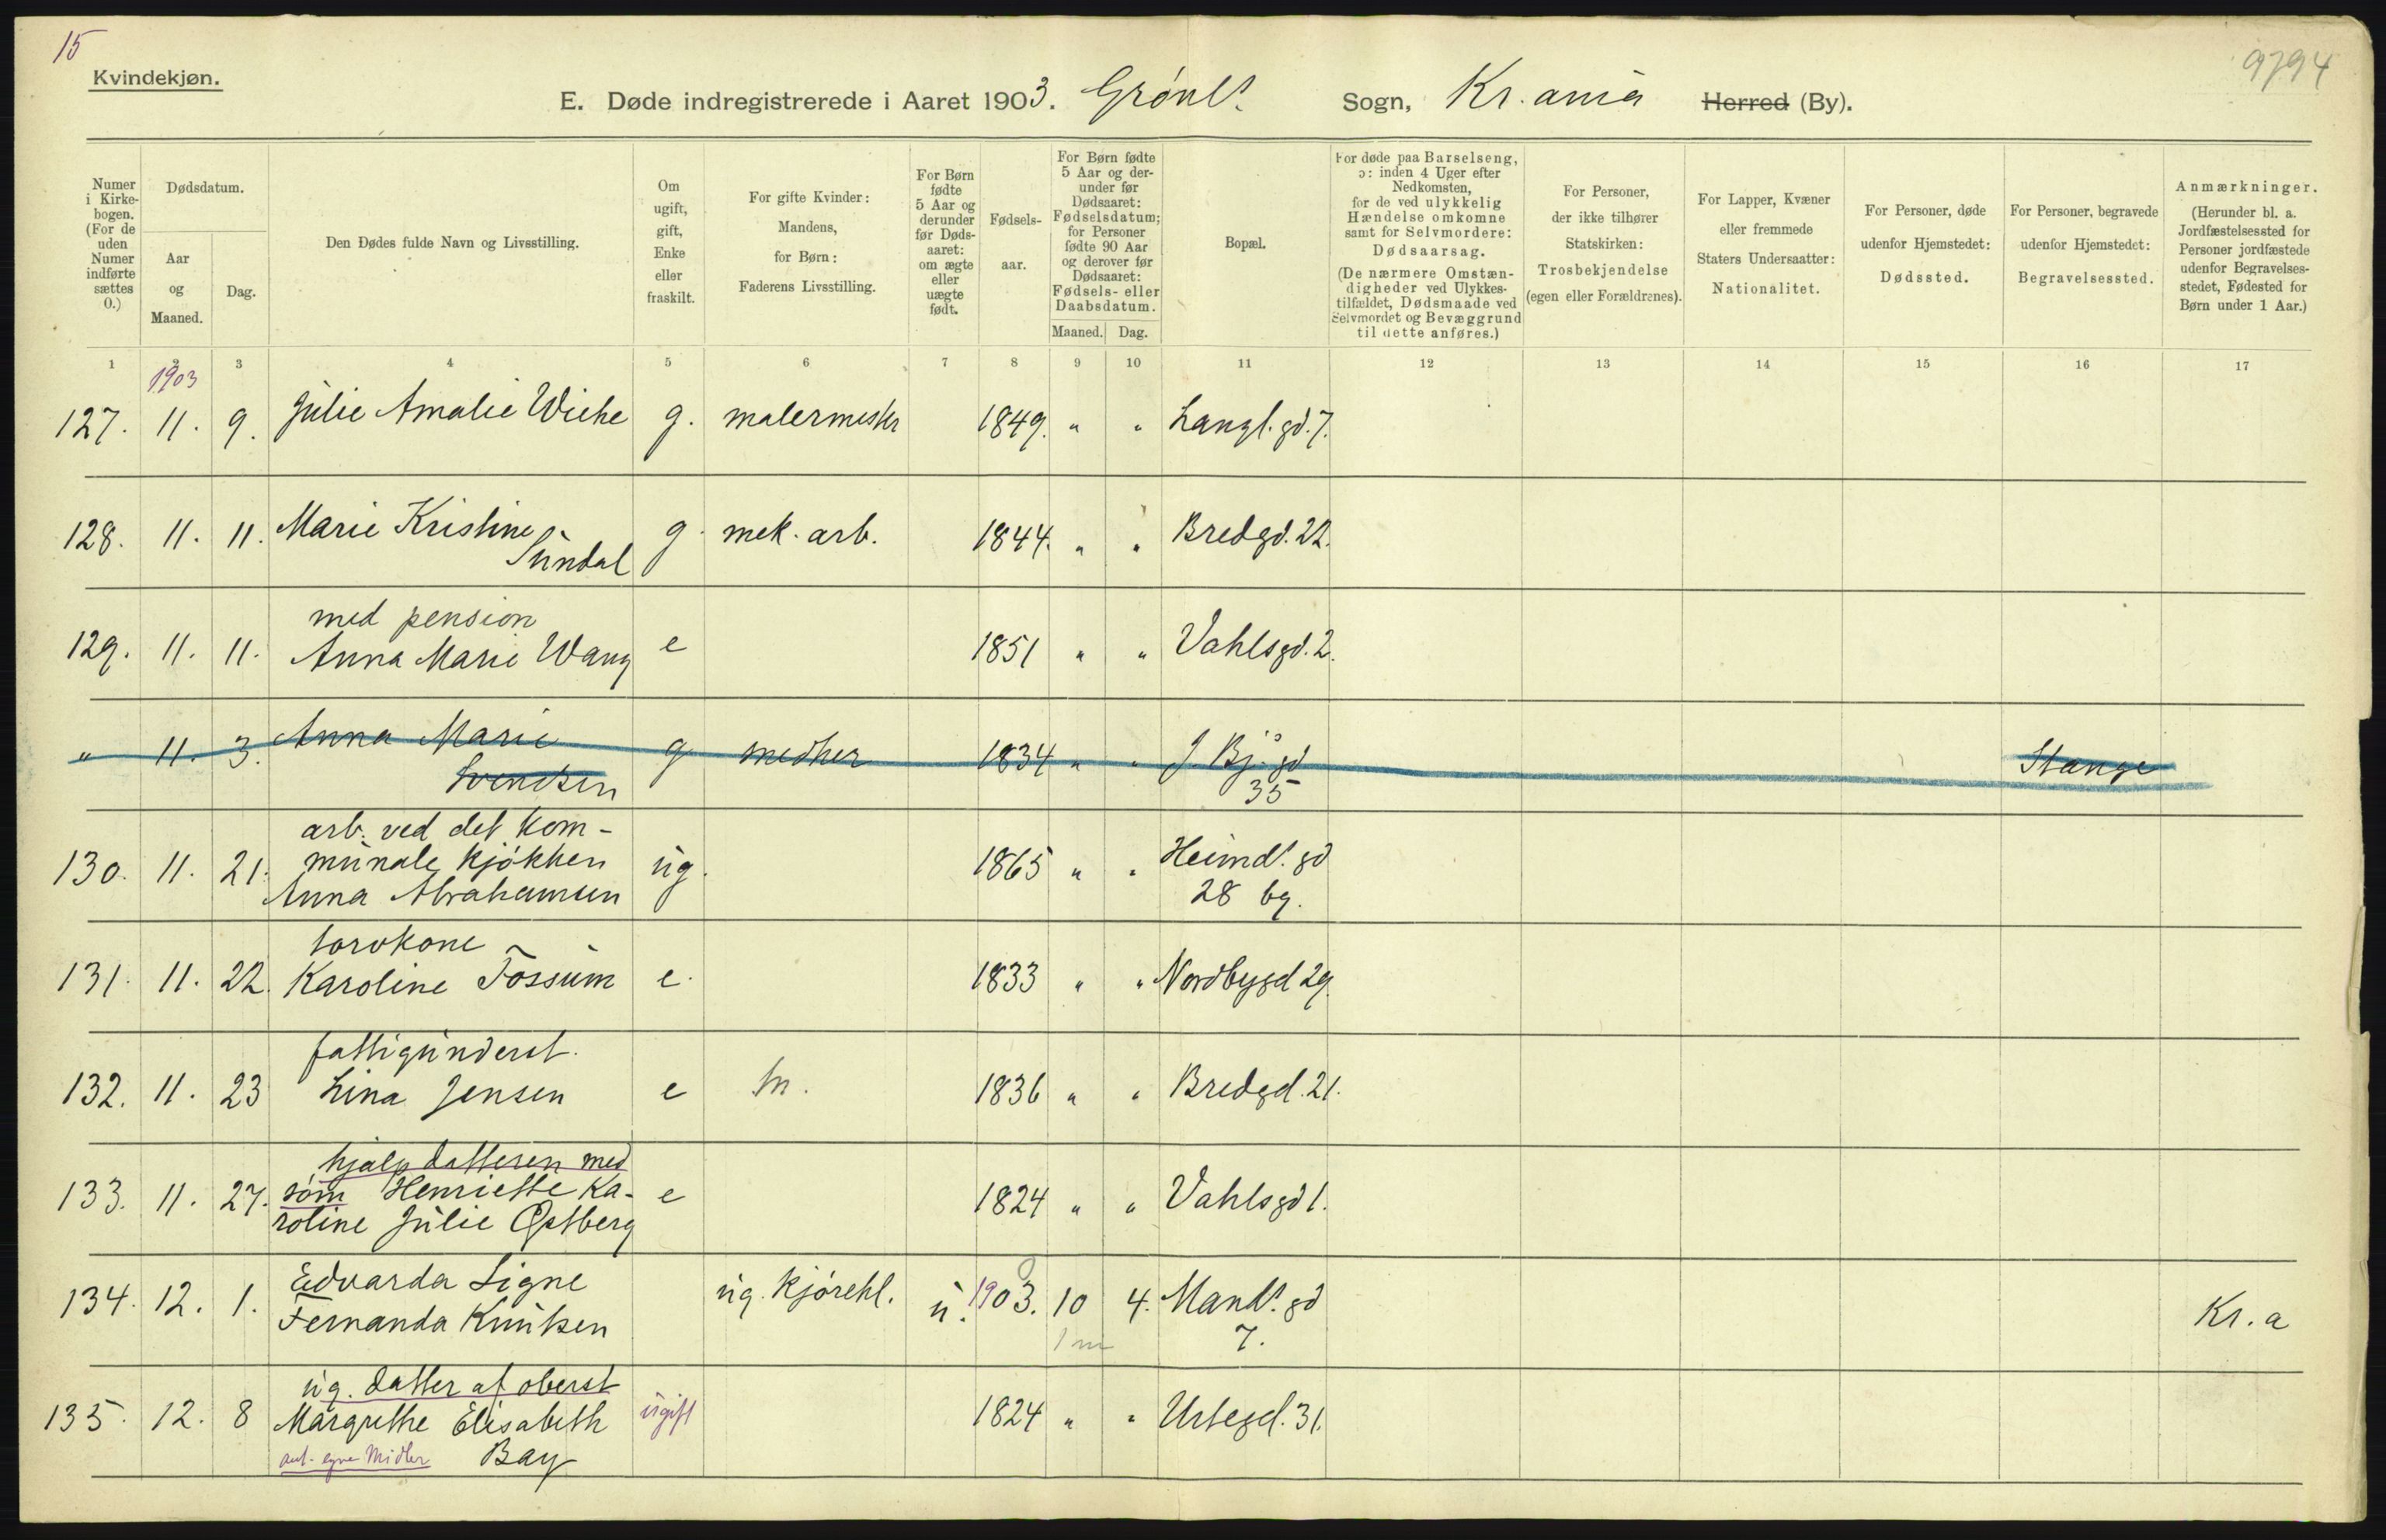 15
9794
Kvindekjøn.
E. Døde indregistrerede i Aaret 1903. Grønl. Sogn, Kr.ania Herred (By).
Numer i Kirke- bogen. (For de uden Numer indførte sættes 0.)
Dødsdatum.
Aar og Maaned.
Dag.
Den Dødes fulde Navn og Livsstilling.
Om ugift, gift, Enke eller fraskilt.
For gifte Kvinder: Mandens, for Børn: Faderens Livsstilling.
For Børn fødte 5 Aar og derunder før Døds- aaret: om ægte eller uægte født.
Fødsels- aar.
For Børn fødte 5 Aar og der- under før Dødsaaret: Fødselsdatum; for Personer fødte 90 Aar og derover før Dødsaaret: Fødsels- eller Daabsdatum.
Maaned. Dag.
Bopæl.
For døde paa Barselseng, ɔ: inden 4 Uger efter Nedkomsten, for de ved ulykkelig Hændelse omkomne samt for Selvmordere: Dødsaarsag. (De nærmere Omstæn- digheder ved Ulykkes- tilfældet, Dødsmaade ved Selvmordet og Bevæggrund til dette anføres.)
For Personer, der ikke tilhører Statskirken: Trosbekjendelse (egen eller Forældrenes).
For Lapper, Kvæner eller fremmede Staters Undersaatter: Nationalitet.
For Personer, døde udenfor Hjemstedet: Dødssted.
For Personer, begravede udenfor Hjemstedet: Begravelsessted.
Anmærkninger. (Herunder bl. a. Jordfæstelsessted for Personer jordfæstede udenfor Begravelses- stedet, Fødested for Børn under 1 Aar.)
1 2 3 4 5 6 7 8 9 10 11 12 13 14 15 16 17
1903
127. 11. 9. Julie Amalie Wiehe g. malermestr 1849. " " Langl.gd.7.
128. 11. 11. Marie Kristine g. mek. arb. 1844. " " Bredgd.22.
Sundal
med pension
129. 11. 11. Anna Marie Wang e 1851 " " Vahlsgd.2.
" 11. 3. Anna Marie g 1834 " " J. Bj. gd Stange
Svendsen 35
arb. ved det kom-
130. 11. 21. munale kjøkken ug. 1865 " " Heimd. gd
Anna Abrahamsen 28 bg.
torvkone
131. 11. 22. Karoline Fossum e. 1833 " " Nordbygd 29.
fattigunderst.
132. 11. 23 Lina Jensen e 1836 " " Bredgd.21.
hjalp datteren med
133. 11. 27. søm Henriette Ka- e 1824 " " Vahlsgd 1.
roline Julie Østberg
134. 12. 1. Edvarda Signe ug. kjørekl. u. 1903. 10 4. Mand. gd Kr.a
Fernanda Knutsen 1 m 7.
ug. datter af oberst
135. 12. 8 Margrethe Elisabeth ugift 1824 " " Urtegd. 31.
ant. egne Midler Bay